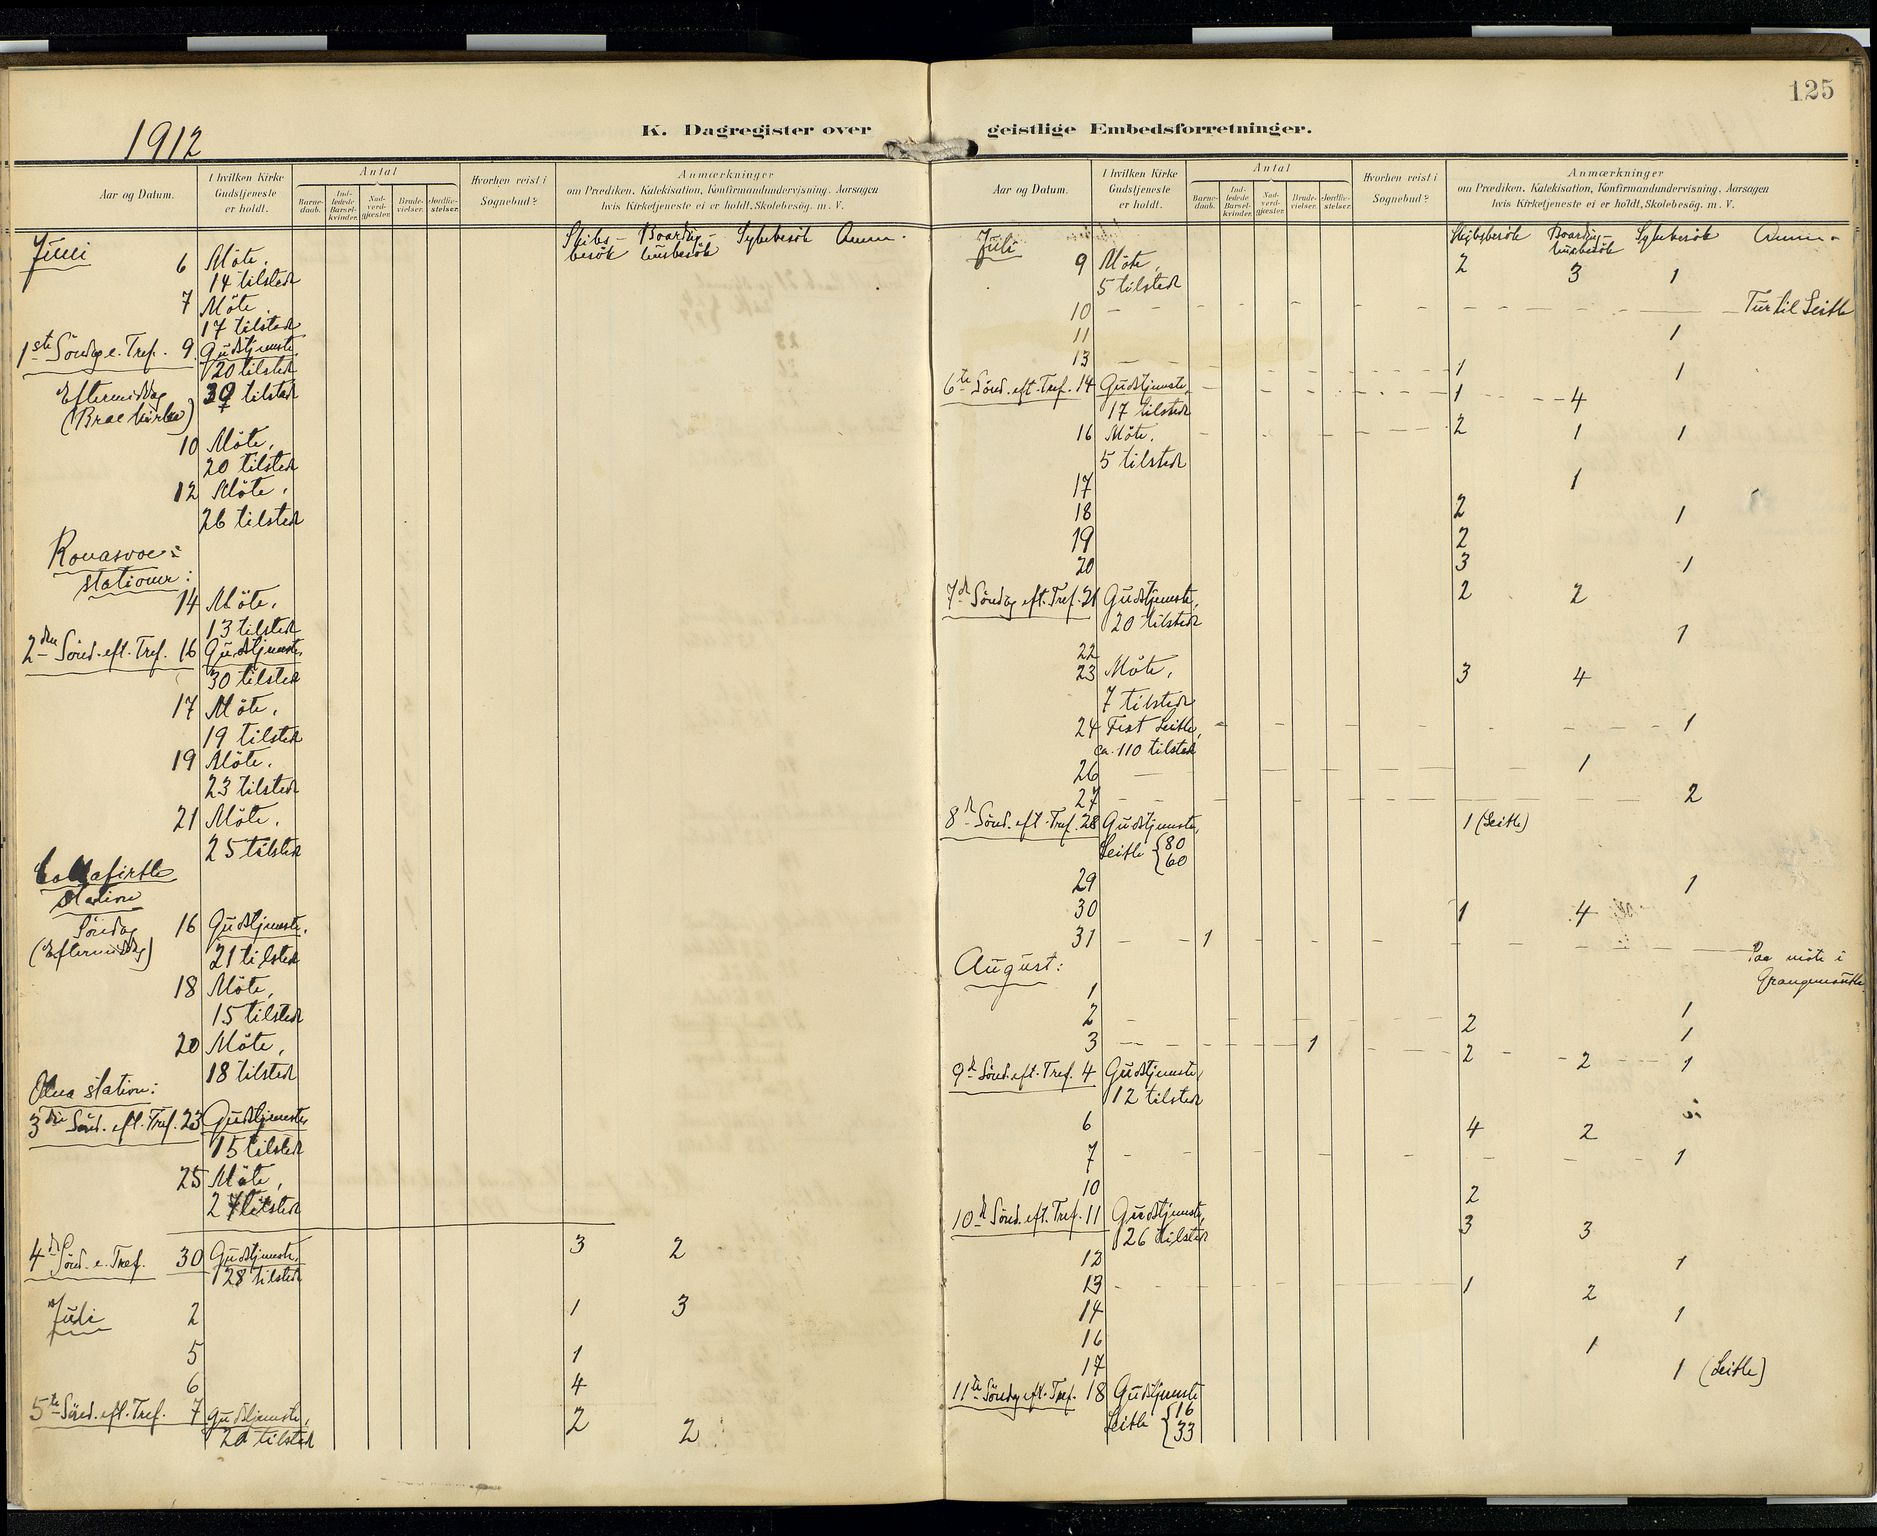 125
1912
K. Dagregister over geistlige Embedsforretninger.
Aar og Datum.
I hvilken Kirke Gudstjeneste er holdt.
Antal
Barnedaab.
Indledede Barselkvinder.
Nadverdgjester.
Brudevielser.
Jordfæstelser.
Hvorhen reist i Sognebud?
Anmærkninger
om Prædiken, Katekisation, Konfirmandundervisning, Aarsagen
hvis Kirketjeneste ei er holdt, Skolebesøg. m. V.
Skibsbesök Boardinghusbesök Sykebesök Anm.
Juni
6 Möte,
14 tilsted
7 Möte
17 tilsted
1ste Söndag e. Tref. 9 Gudstjeneste
120 tilsted
Eftermiddag 39 tilsted
(Brae kirke)
10 Möte,
20 tilsted
12 Möte,
26 tilsted
Ronasvoe
stationer:
14 Möte,
13 tilsted
2den Sönd. eft. Tref. 16 Gudstjeneste,
30 tilsted
17 Möte,
19 tilsted
19 Möte,
23 tilsted
21 Möte,
25 tilsted
Collafirthe
station
Söndag 16 Gudstjeneste,
(Eftermiddag) 21 tilsted
18 Möte,
15 tilsted
20 Möte,
18 tilsted
Olna station:
3die Sönd. eft. Tref. 23 Gudstjeneste
15 tilsted
25 Möte,
27 tilsted
4d Sönd. e. Tref. 30 Gudstjeneste, 3 2
128 tilsted
Juli 2 1 3
5 1
6 4
5te Sönd. eft. Tref. 7 Gudstjeneste, 2 2
20 tilsted
Aar og Datum.
I hvilken Kirke Gudstjeneste er holdt.
Antal
Barnedaab.
Indledede Barselkvinder.
Nadverdgjester.
Brudevielser.
Jordfæstelser.
Hvorhen reist i Sognebud?
Anmærkninger
om Prædiken, Katekisation, Konfirmandundervisning, Aarsagen
hvis Kirketjeneste ei er holdt, Skolebesøg. m. V.
Skibsbesök Boardinghusbesök Sykebesök Anm.
Juli
9 Möte, 2 3 1
5 tilsted
10 Tur til Leith
11 1
13 1 1
6te Sönd. eft. Tref. 14 Gudstjeneste, 1 4
17 tilsted
16 Möte, 2 1 1
5 tilsted
17 1
18 2 1
19 2
20 3 1
7d Söndag eft. Tref. 21 Gudstjeneste, 2 2
120 tilsted
22 1
23 Möte, 3 4
7 tilsted
24 Fest Leith, 1
ca. 110 tilsted
26 1
27 2
8d Sönd. eft. Tref. 28 Gudstjeneste, 1 (Leith)
Leith {80
60
29 1
30 1 4
31 1 Paa möte i
Grangemouth
August:
1
2 2 1
3 1 2 2 1
9d Sönd. eft. Tref. 4 Gudstjeneste,
12 tilsted
6 4 2
7 1
10 2
10d Sönd. eft. Tref. 11 Gudstjeneste, 3 3
26 tilsted
12 1
13 1 2
14 1
16 1
17 1 (Leith)
11te Söndag eft. Tref. 18 Gudstjeneste
Leith {16
33